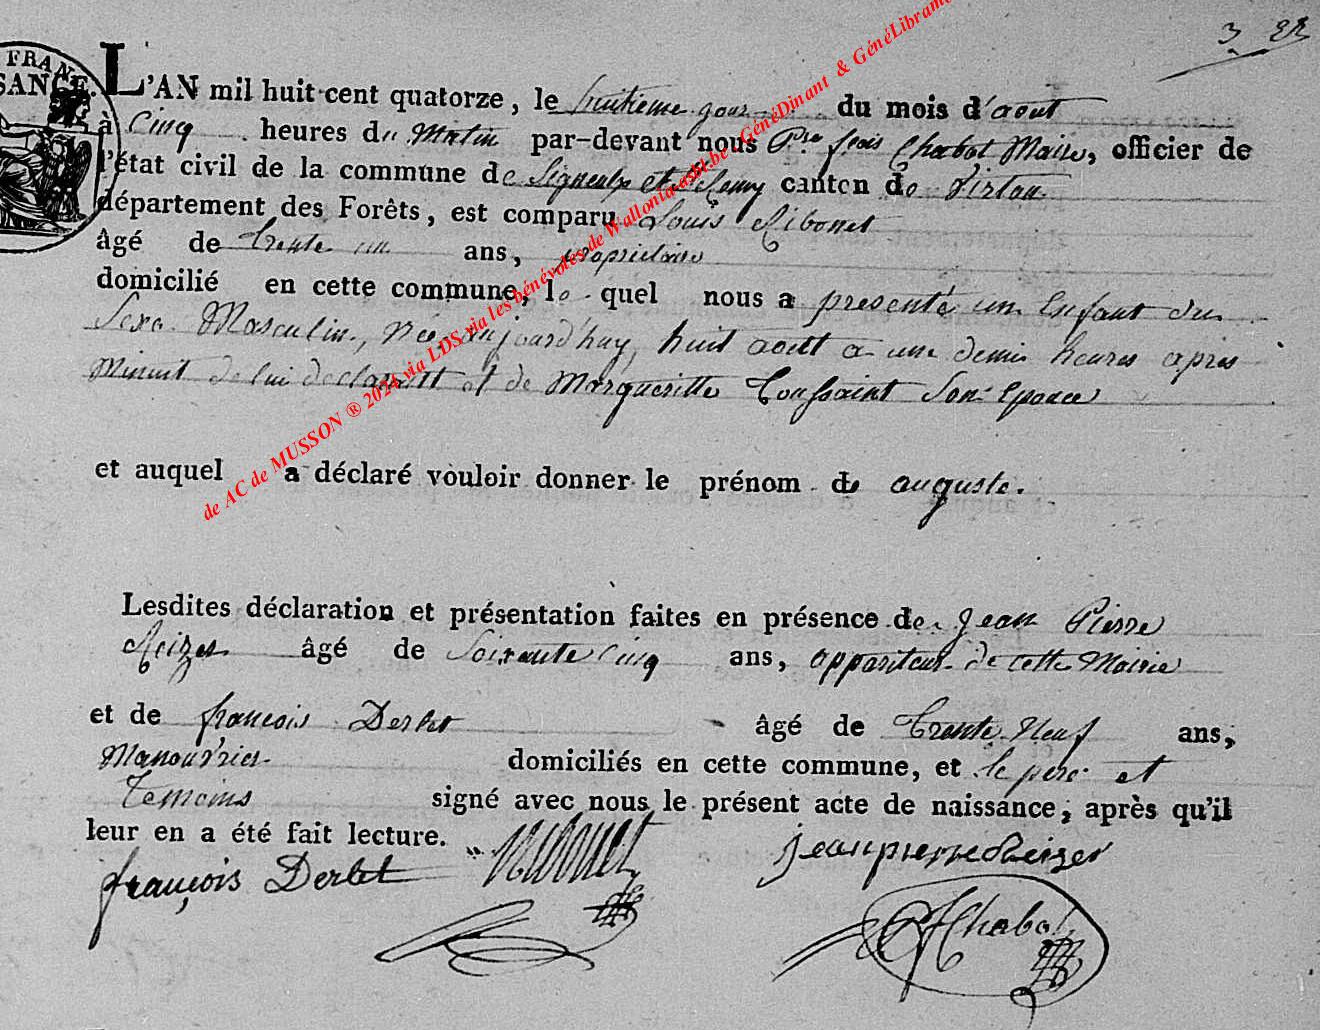 3
FRAN
SANCE.
L'AN mil huit cent quatorze, le huitieme jour du mois d'aout
à Cinq heures du Matin par-devant nous Pre fcois Chabot Maire, officier de
l'état civil de la commune de Signeulx et canton de Virton
département des Forêts, est comparu Louis Ribonet
âgé de trente un ans, propriétaire
domicilié en cette commune, le quel nous a presenté un Enfant du
Sexe Masculin, Née aujourd'huy, huit aout a une demie heures apres
Minuit de lui declarant et de Margueritte Toussaint Son Epouce
et auquel a déclaré vouloir donner le prénom de auguste.
Lesdites déclaration et présentation faites en présence de Jean Pierre
Reizer âgé de Soixante cinq ans, appariteur de cette Mairie
et de francois Derlet âgé de trente Neuf ans,
Manouvrier domiciliés en cette commune, et le pere et
Temoins signé avec nous le présent acte de naissance, après qu'il
leur en a été fait lecture.
françois Derlet
jean pierre Reizer
Chabot
de AC de MUSSON ® 2024 via LDS via les bénévoles de Wallonia-asbl.be - GénéDinant & GénéLibramo